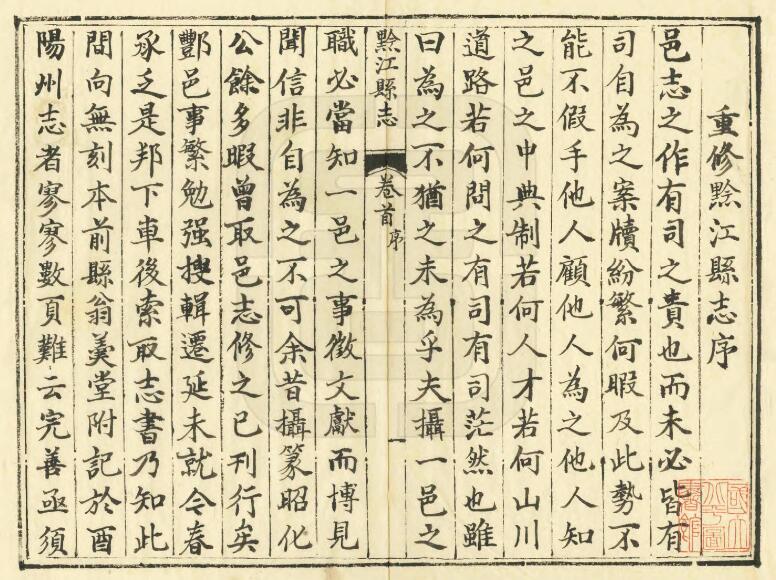 重修黔江縣志序
邑志之作有司之責也而未必皆有
司自為之案牘紛繁何暇及此勢不
能不假手他人顧他人為之他人知
之邑之中典制若何人才若何山川
道路若何問之有司有司茫然也雖
曰為之不猶之未為乎夫攝一邑之
黔江縣志
卷首序
一
職必當知一邑之事徵文獻而博見
聞信非自為之不可余昔攝篆昭化
公餘多暇曾取邑志修之已刊行矣
酆邑事繁勉强搜輯遷延未就今春
承乏是邦下車後索取志書乃知此
間向無刻本前縣翁羹堂附記於酉
陽州志者寥寥數頁難云完善亟須